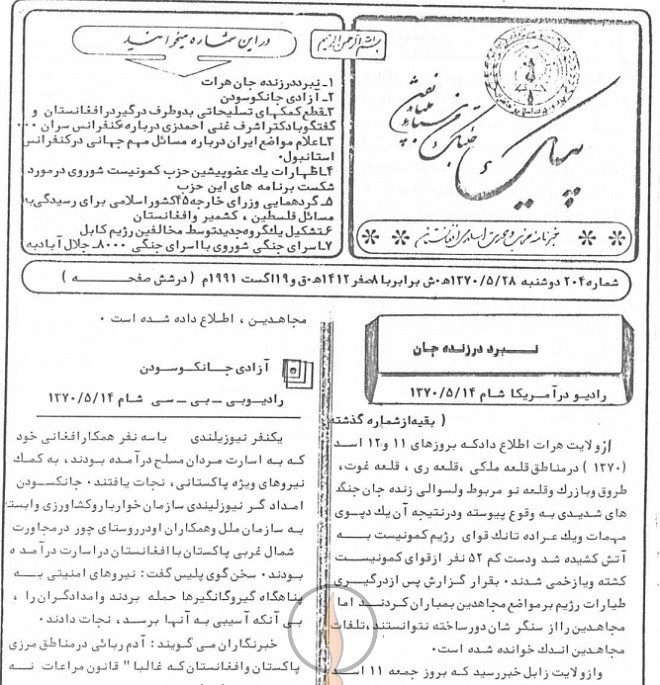 بسم الله الرحمن الرحیم
در این شماره میخوانید
۱ـ نبرد در زنده جان هرات
۲ـ آزادی جانکوسودن
۳ـ قطع کمکهای تسلیحاتی بدو طرف درگیر در افغانستان و
گفتگو با دکتر اشرف غنی احمدزی درباره کنفرانس سران ۰۰۰
۳ـ اعلام مواضع ایران درباره مسائل مهم جهانی در کنفرانس
استانبول.
۴ـ اظهارات یک عضو پیشین حزب کمونیست شوروی در مورد
شکست برنامه های این حزب
۵ـ گردهمایی وزرای خارجه ۴۵ کشور اسلامی برای رسیدگی به
مسائل فلسطین ، کشمیر و افغانستان
۶ـ تشکیل یک گروه جدید توسط مخالفین رژیم کابل
۷ـ اسرای جنگی شوروی با اسرای جنگی ۸۰۰۰ـ جلال آباد به
پیام
خبرنامه حزب وحدت اسلامی افغانستان
شماره ۲۰۴ دوشنبه ۱۳۷۰/۵/۲۸ ه‍ ش برابر با ۸ صفر ۱۴۱۲ ه‍ ق و ۱۹ اگست ۱۹۹۱ م ( در شش صفحه )
نبرد در زنده جان
رادیو در آمریکا شام ۱۳۷۰/۵/۱۴
( بقیه از شماره گذشته
از ولایت هرات اطلاع داد که بروزهای ۱۱ و ۱۲ اسد
(۱۳۷۰ ) در مناطق قلعه ملکی ، قلعه ری ، قلعه غوت،
طروق و بازرك و قلعه نو مربوط ولسوالی زنده جان جنگ
های شدیدی به وقوع پیوسته و در نتیجه آن یك دیپوی
مهمات و یك عراده تانك قوای رژیم کمونیست به
آتش کشیده شد و دست کم ۵۲ نفر از قوای کمونیست
کشته و یا زخمی شدند. بقرار گزارش پس از درگیری
طیارات رژیم بر مواضع مجاهدین بمباران کردند اما
مجاهدین را از سنگر شان دور ساخته نتوانستند، تلفات
مجاهدین اندك خوانده شده است.
و از ولایت زابل خبر رسید که بروز جمعه ۱۱ اسد
مجاهدین ، اطلاع داده شده است .
آزادی جانکوسودن
رادیو بی ـ بی ـ سی شام ۱۳۷۰/۵/۱۴
یکنفر نیوزیلندی با سه نفر همکار افغانی خود
که به اسارت مردان مسلح در آمده بودند، به کمك
نیروهای ویژه پاکستانی، نجات یافتند. جانکسودن
امدادگر نیوزلیندی سازمان خواربار و کشاورزی وابسته
به سازمان ملل و همکاران او در روستای چور در مجاورت
شمال غربی پاکستان با افغانستان در اسارت در آمده
بودند. سخن گوی پلیس گفت: نیروهای امنیتی به
پناهگاه گیروگانگیرها حمله بردند و امدادگران را ،
بی آنکه آسیبی به آنها برسد، نجات دادند.
خبرنگاران می گویند: آدم ربائی در مناطق مرزی
پاکستان و افغانستان که غالبا " قانون مراعات نه